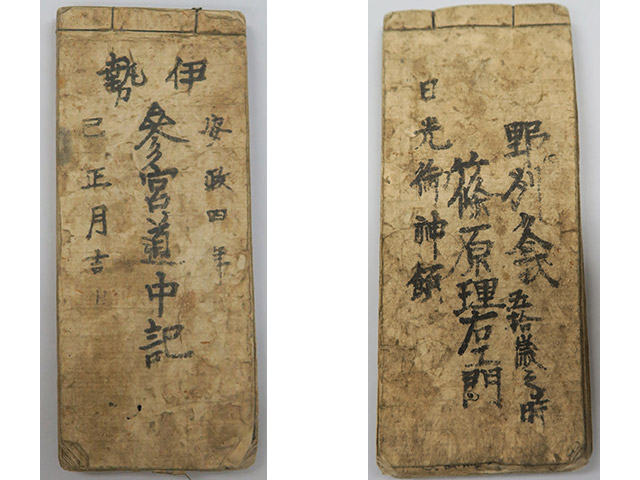 伊勢
安政四年
參宮道中記
巳正月吉日
野刕
五拾歳之時
篠原理右エ門
日光御神領